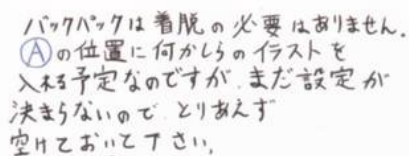 バックパックは着脱の必要はありません.
Ⓐの位置に何かしらのイラストを
入れる予定なのですが、まだ設定が
決まらないので、とりあえず
空けておいて下さい,